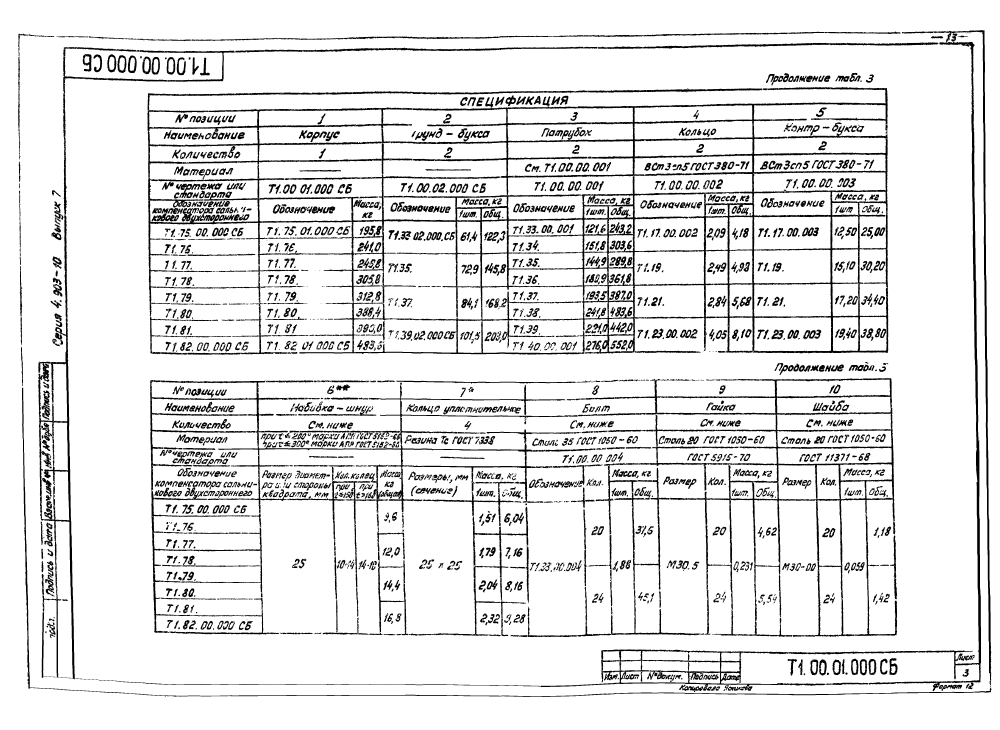 — 13 —
Т1.00.00.000 СБ
Продолжение табл. 3
СПЕЦИФИКАЦИЯ
№ позиции 1 2 3 4 5
Наименование Корпус Грунд-букса Патрубок Кольцо Контр-букса
Количество 1 2 2 2 2
Материал — — См. Т1.00.00.001 ВСт3сп5 ГОСТ 380-71 ВСт3сп5 ГОСТ 380-71
№ чертежа или стандарта Т1.00.01.000 СБ Т1.00.02.000 СБ Т1.00.00.001 Т1.00.00.002 Т1.00.00.003
Обозначение компенсатора сальникового двухстороннего Обозначение Масса, кг Обозначение Масса, кг 1шт. Общ. Обозначение Масса, кг 1шт. Общ. Обозначение Масса, кг 1шт. Общ. Обозначение Масса, кг 1шт. Общ.
Т1.75.00.000 СБ Т1.75.01.000 СБ 195,8 Т1.33.02.000 СБ 61,4 122,3 Т1.33.00.001 121,6 243,2 Т1.17.00.002 2,09 4,18 Т1.17.00.003 12,50 25,00
Т1.76. Т1.76. 241,0 Т1.34. 151,8 303,6
Т1.77. Т1.77. 245,8 Т1.35. 72,9 145,8 Т1.35. 144,9 289,8 Т1.19. 2,49 4,98 Т1.19. 15,10 30,20
Т1.78. Т1.78. 305,8 Т1.36. 180,9 361,8
Т1.79. Т1.79. 312,8 Т1.37. 84,1 168,2 Т1.37. 193,5 387,0 Т1.21. 2,84 5,68 Т1.21. 17,20 34,40
Т1.80. Т1.80. 388,4 Т1.38. 241,8 483,6
Т1.81. Т1.81 Т1.39.02.000 СБ 101,5 203,0 Т1.39. 442,0 Т1.23.00.002 4,05 8,10 Т1.23.00.003 19,40 38,80
Т1.82.00.000 СБ Т1.82.01.000 СБ 483,6 Т1.40.00.001 276,0 552,0
Продолжение табл. 3
№ позиции 6** 7* 8 9 10
Наименование Набивка-шнур Кольцо уплотнительное Болт Гайка Шайба
Количество См. ниже 4 См. ниже См. ниже См. ниже
Материал Резина Тс ГОСТ 7338 Сталь 35 ГОСТ 1050-60 Сталь 20 ГОСТ 1050-60 Сталь 20 ГОСТ 1050-60
№ чертежа или стандарта — — Т1.00.00.004 ГОСТ 5915-70 ГОСТ 11371-68
Обозначение компенсатора сальникового двухстороннего Размер диаметра или стороны квадрата, мм Кол. колец при при Масса кг (общая) Размеры, мм (сечение) Масса, кг 1шт. Общ. Обозначение Кол. Масса, кг 1шт. Общ. Размер Кол. Масса, кг 1шт. Общ. Размер Кол. Масса, кг 1шт. Общ.
Т1.75.00.000 СБ 9,6 1,51 6,04
Т1.76. 20 37,6 20 4,62 20 1,18
Т1.77. 12,0 1,79 7,16
Т1.78. 25 25 х 25 Т1.33.00.004 1,88 М30.5 0,231 0,059
Т1.79. 14,4 2,04 8,16
Т1.80. 24 45,1 24 5,54 24 1,42
Т1.81. 16,8 2,32 9,28
Т1.82.00.000 СБ
Серия 4.903-10 Выпуск 7
Подпись и дата
Подпись и дата
Изм. Лист № докум. Подпись Дата
Т1.00.01.000 СБ
Лист
3
Копировала
Формат 12